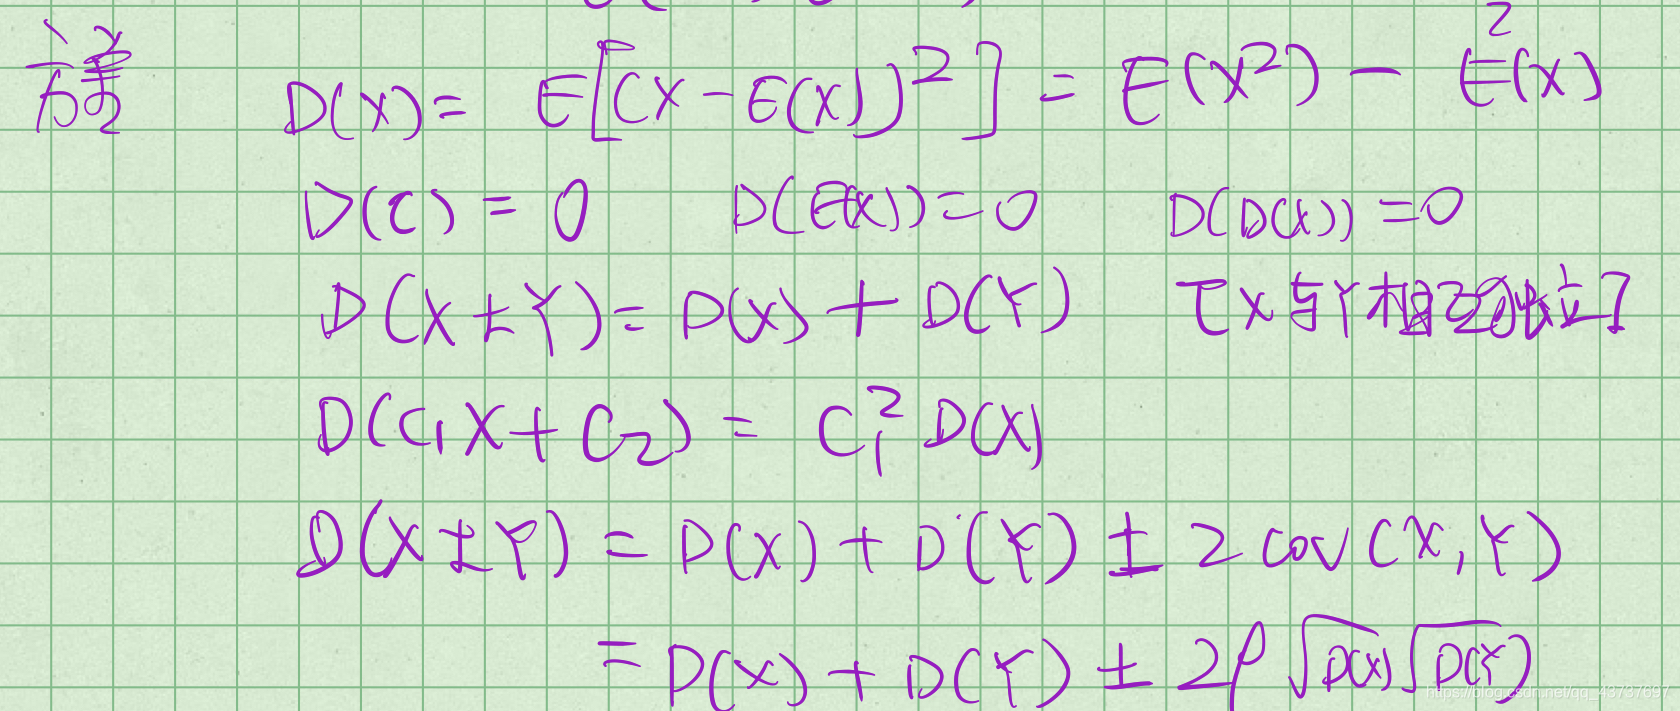 方差 D(X) = E[(X - E(X))²] = E(X²) - E²(X)
D(C) = 0 D(E(X)) = 0 D(D(X)) = 0
D(X+Y) = D(X) + D(Y) [X与Y相互独立]
D(C₁X+C₂) = C₁² D(X)
D(X±Y) = D(X) + D(Y) ± 2cov(X,Y)
= D(X) + D(Y) ± 2ρ√D(X)√D(Y)
https://blog.csdn.net/qq_43737697